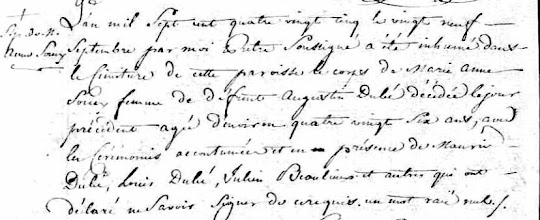 Sep. de M.
Anne Souci
L'an mil Sept cent quatre vingt cinq le vingt neuf
Septembre par moi Pretre Soussigné a été inhumé dans
le Cimiture de cette paroisse le corps de Marie Anne
Soucy femme de défunt Augustin Dubé décédée le jour
précédent agée d'environ quatre vingt Six ans, avec
les Cérémonies accoutumées et en présence de
Dubé, Louis Dubé, Julien Beaulieux et autres qui ont
déclaré ne Savoir Signer de ce requis. un mot raïé nul./.